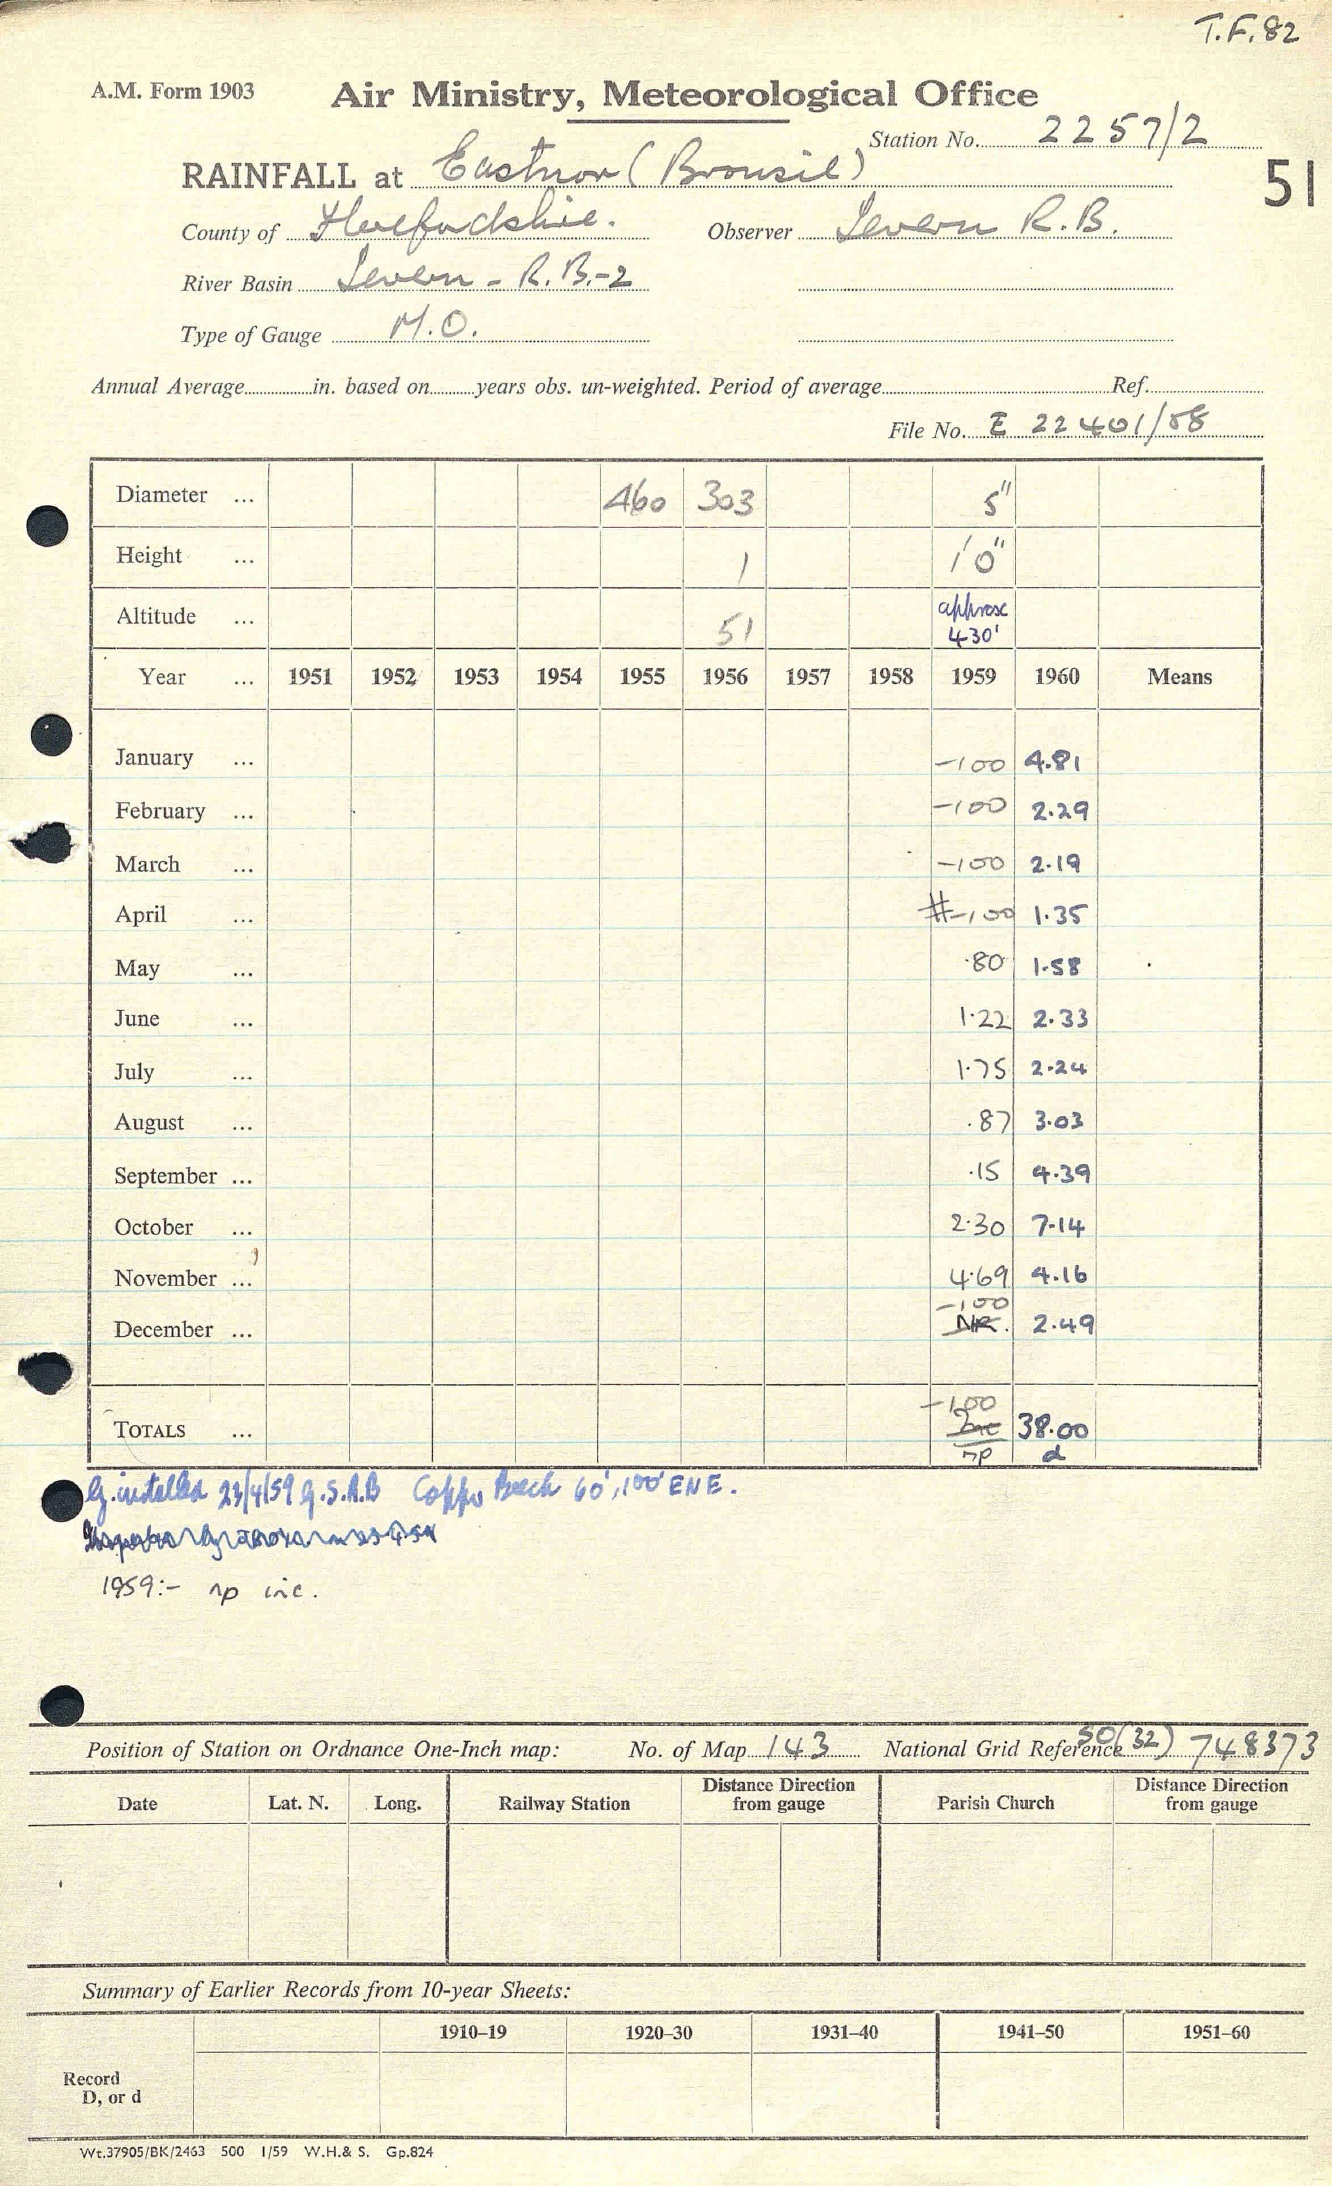 T.F.82
A.M. Form 1903 Air Ministry, Meteorological Office
Station No. 2257/2
RAINFALL at Eastnor (Bronsil) 51
County of Herefordshire. Observer Severn R.B.
River Basin Severn - R.B.-2
Type of Gauge M.O.
Annual Average in. based on years obs. un-weighted. Period of average Ref.
File No. E 22401/58
Diameter ... 460 303 5"
Height ... 1 1'0"
Altitude ... 51 approx 430'
Year ... 1951 1952 1953 1954 1955 1956 1957 1958 1959 1960 Means
January ... -100 4.81
February ... -100 2.29
March ... -100 2.19
April ... #-100 1.35
May ... .80 1.58
June ... 1.22 2.33
July ... 1.75 2.24
August ... .87 3.03
September ... .15 4.39
October ... 2.30 7.14
November ... 4.69 4.16
December ... -100 NR. 2.49
TOTALS ... -100 inc np 38.00 d
G. installed 23/4/59 G.S.R.B Beech 60', 100' ENE.
1959:- np inc.
Position of Station on Ordnance One-Inch map: No. of Map 143 National Grid Reference SO(32) 748373
Date Lat. N. Long. Railway Station Distance Direction from gauge Parish Church Distance Direction from gauge
Summary of Earlier Records from 10-year Sheets:
1910–19 1920–30 1931–40 1941–50 1951–60
Record
D, or d
Wt.37905/BK/2463 500 1/59 W.H.& S. Gp.824